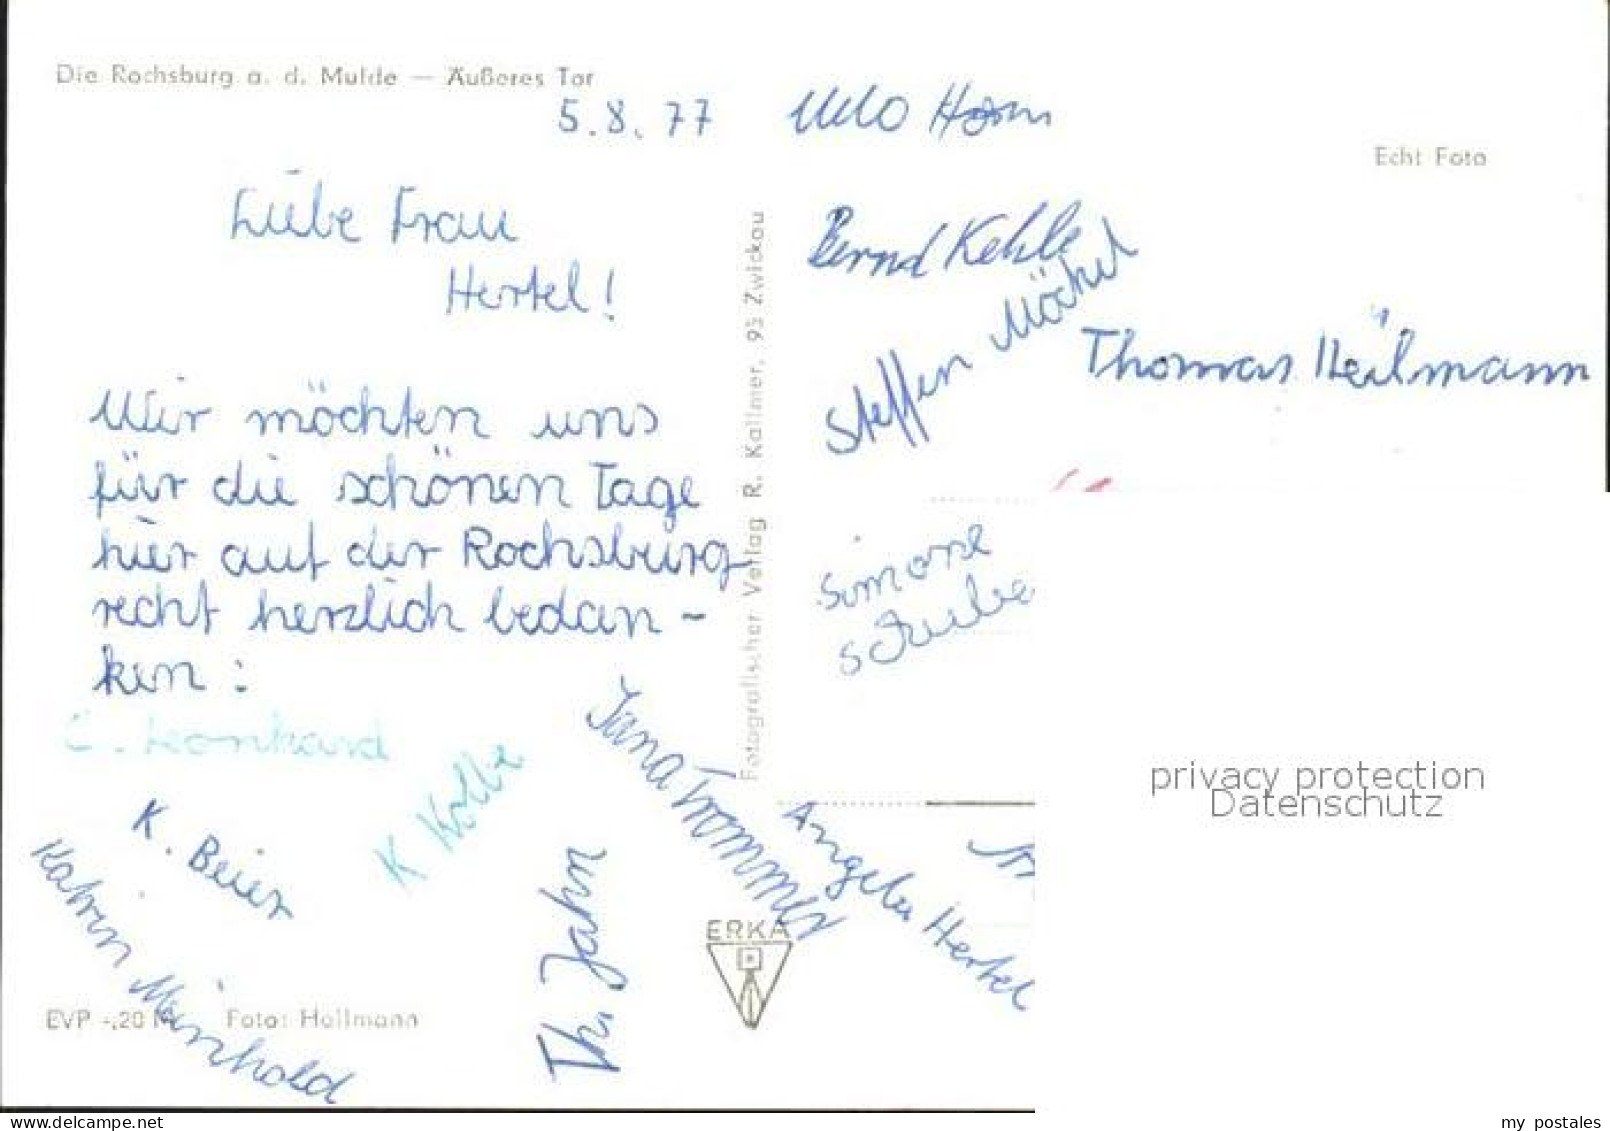 Die Rochsburg a. d. Mulde — Äußeres Tor
5.8.77
Liebe Frau
Hertel!
Wir möchten uns
für die schönen Tage
hier auf der Rochsburg
recht herzlich bedan-
ken:
C. Leonhard
K. Beier
K Kolbe
Katrin Meinhold
Th. Jahn
Jana Trommer
EVP -,20 M
Foto: Hallmann
Fotografischer Verlag R. Kallmer, 95 Zwickau
ERKA
Udo Horn
Echt Foto
Bernd Kehle
Steffen Möckel
Thomas Heilmann
Simone
Angela Hertel
privacy protection
Datenschutz
www.delcampe.net
my_postales